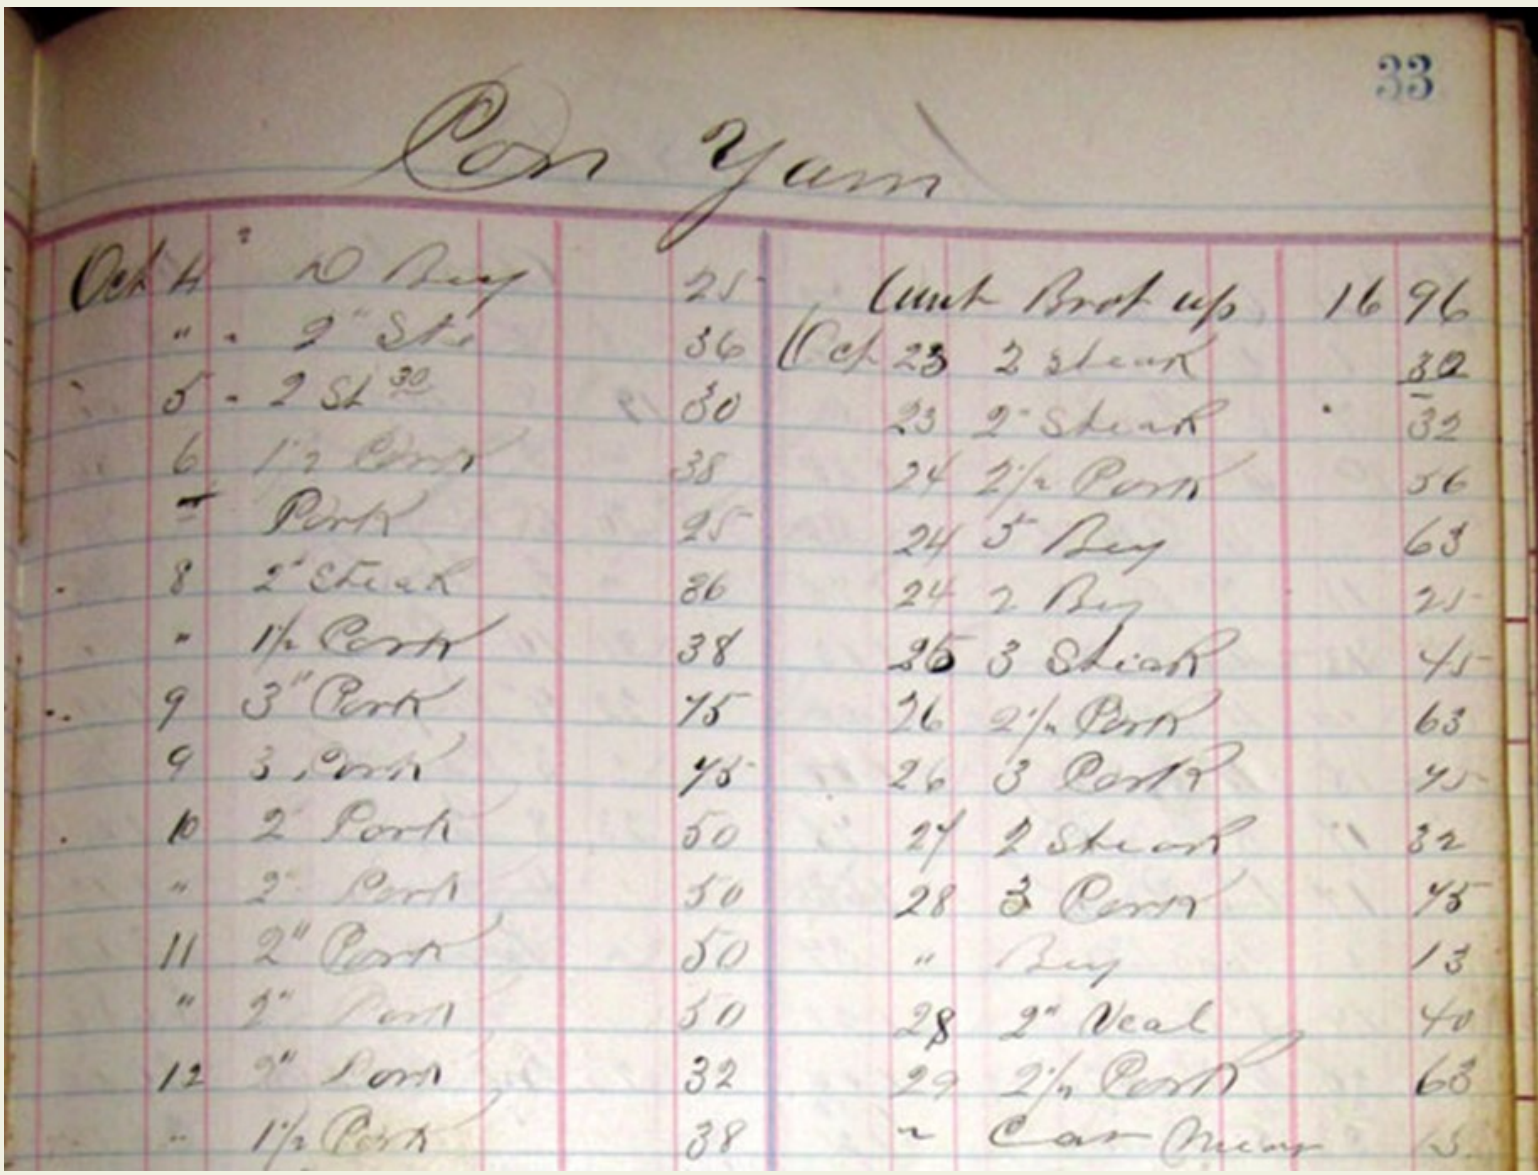 33
Con Yam
Oct 4 D Bey 25
" " 2" Ste 36
5 " 2 St 30 30
6 1½ Pork 38
Pork 25
8 2" Steak 36
" 1½ Pork 38
9 3" Pork 75
9 3 Pork 75
10 2 Pork 50
" 2" Pork 50
11 2" Pork 50
" 2" Pork 50
12 2" Pork 32
" 1½ Pork 38
Amt Brot up 16 96
Oct 23 2 Steak 32
23 2" Steak 32
24 2½ Pork 56
24 5 Bey 63
24 2 Bey 25
25 3 Steak 45
26 2½ Pork 63
26 3 Pork 75
27 2 Steak 32
28 3 Pork 75
" Bey 13
28 2" Veal 40
29 2½ Pork 63
"